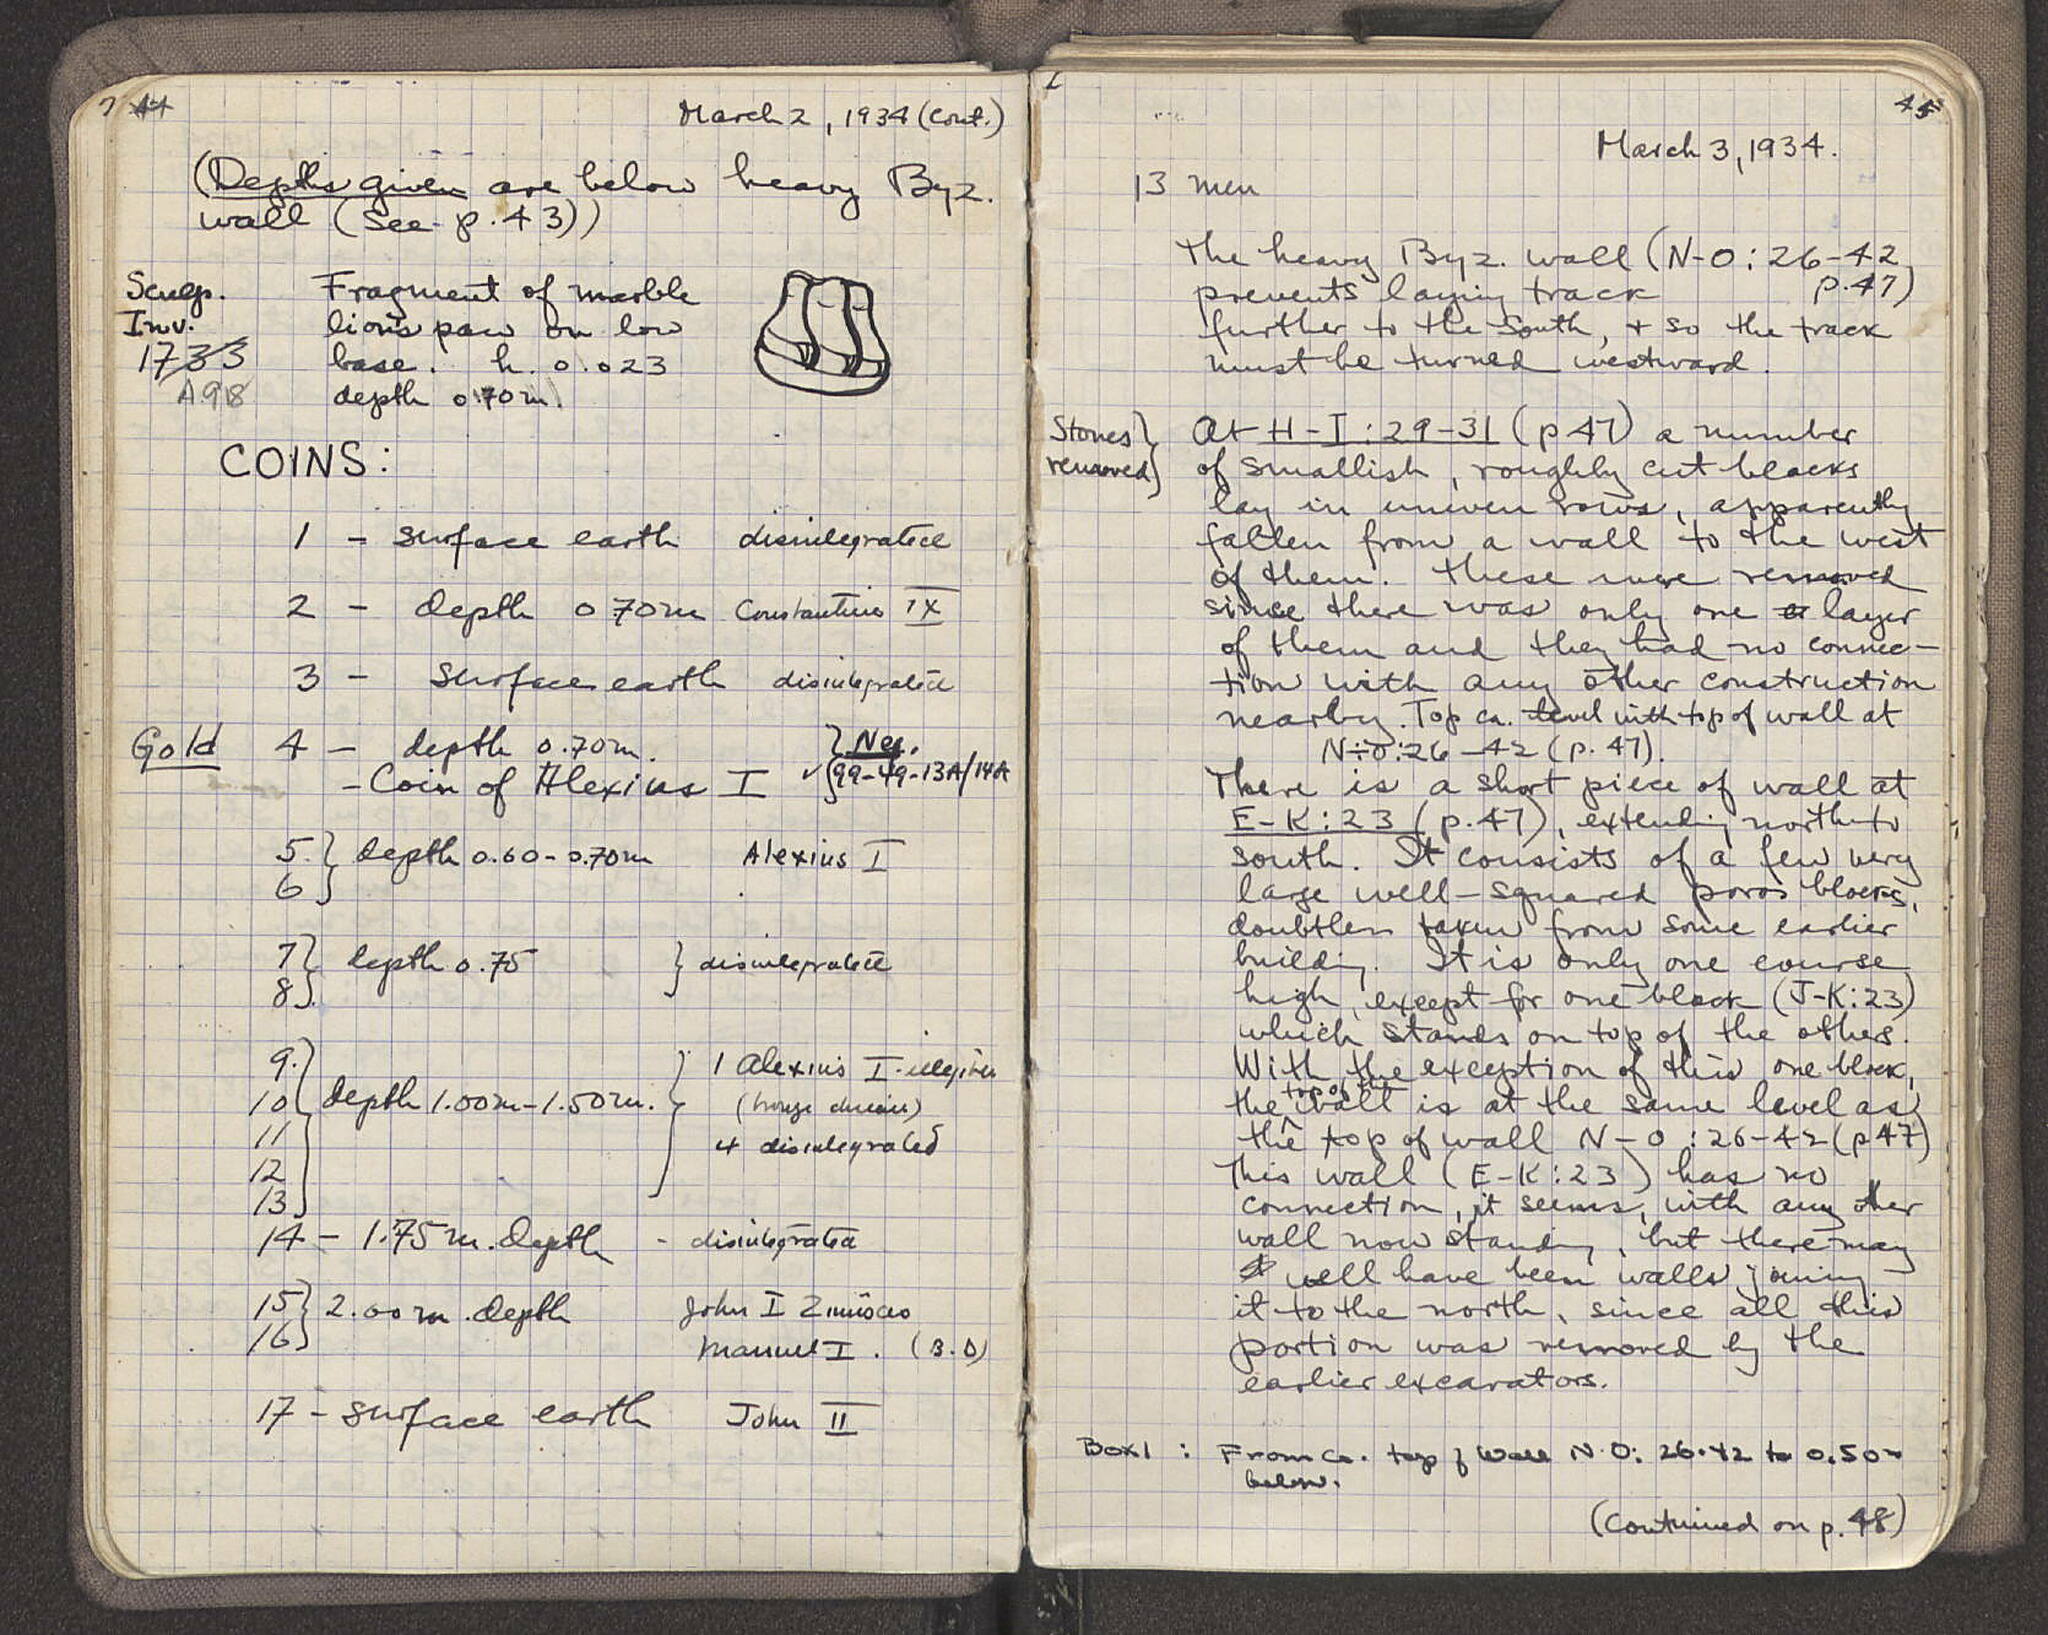 44
March 2, 1934 (Cont.)
(Depths given are below heavy Byz.
wall (see p. 43))
Sculp. Fragment of marble
Inv. lion's paw on low
1733 base. h. 0.023
A918 depth 0.70m.
COINS:
1 - surface earth disintegrated
2 - depth 0.70m Constantine IX
3 - surface earth disintegrated
Gold 4 - depth 0.70m. } Neg.
- Coin of Alexius I ✓ {99-49-13A/14A
5 } depth 0.60-0.70m Alexius I
6
7 } depth 0.75 } disintegrated
8
9 1 Alexius I
10 } depth 1.00m-1.50m.
11 4 disintegrated
12
13
14 - 1.75 m. depth - disintegrated
15 } 2.00 m. depth John I
16 Manuel I. (3.D)
17 - surface earth John II
45
March 3, 1934.
13 men
The heavy Byz. wall (N-O:26-42
prevents laying track p.47)
further to the South, + so the track
must be turned westward.
Stones } At H-I:29-31 (p 47) a number
removed of smallish, roughly cut blocks
lay in uneven rows, apparently
fallen from a wall to the west
of them. These were removed
since there was only one layer
of them and they had no connec-
tion with any other construction
nearby. Top ca. level with top of wall at
N-O:26-42 (p. 47).
There is a short piece of wall at
E-K:23 (p.47), extending north to
south. It consists of a few very
large well-squared poros blocks,
doubtless taken from some earlier
building. It is only one course
high, except for one block (J-K:23)
which stands on top of the others.
With the exception of this one block,
the top of the wall is at the same level as
the top of wall N-O:26-42 (p 47)
This wall (E-K:23) has no
connection, it seems, with any other
wall now standing, but there may
well have been walls joining
it to the north, since all this
portion was removed by the
earlier excavators.
Box 1 : From ca. top of wall N-O: 26-42 to 0.50m
below.
(Continued on p. 48)